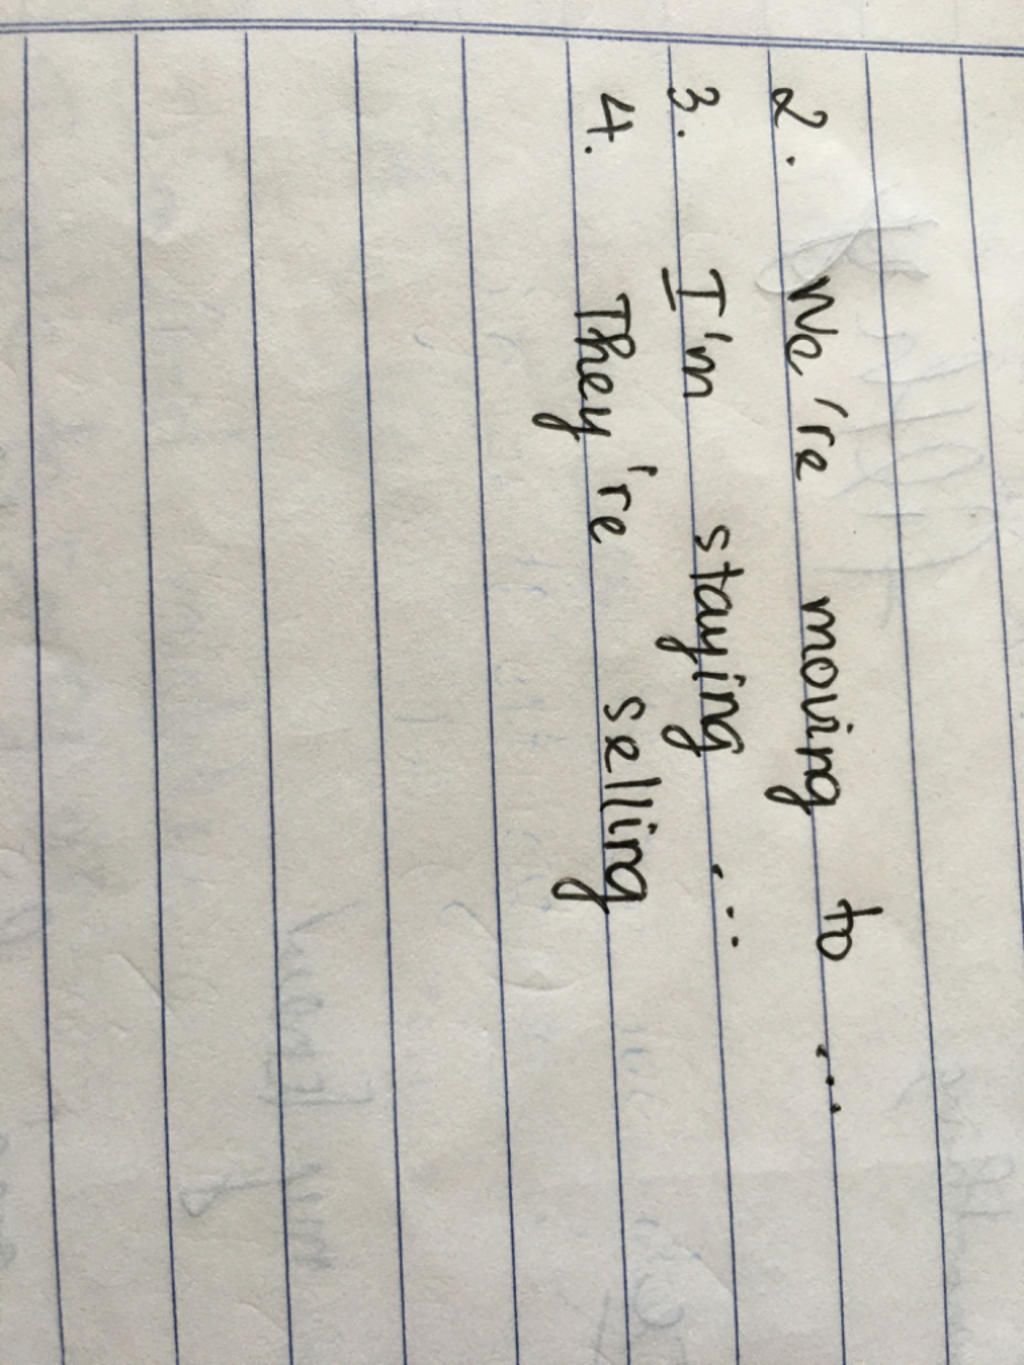 2. We're moving to ...
3. I'm staying ...
4. They're selling